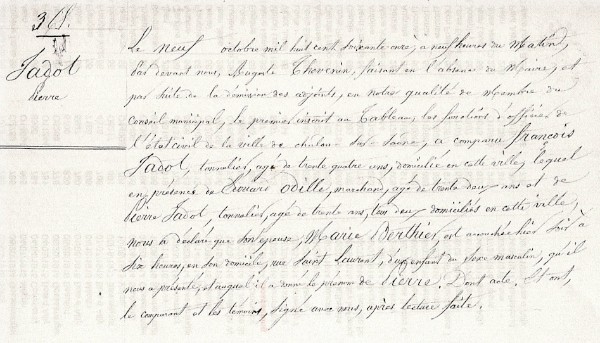 365.
Jadot
Pierre
Le neuf octobre mil huit cent soixante onze, a neuf heures du Matin,
par devant nous, Auguste Thevenin, faisant en l'absence du Maire, et
par suite de la démission des adjoints, en notre qualité de Membre du
Conseil municipal, le premier inscrit au Tableau, les fonctions d'officier de
l'état civil de la ville de Chalon sur Saône, a comparu françois
Jadot, tonnelier, agé de trente quatre ans, domicilié en cette ville, lequel
en présence de Edouard Odille, marchand, agé de trente deux ans et de
Pierre Jadot, tonnelier, agé de trente ans, tous deux domiciliés en cette ville,
nous a déclaré que son épouse, Marie Berthier, est accouchée hier soir à
six heures, en son domicile, rue Saint Laurent, d'un enfant du sexe masculin, qu'il
nous a présenté, et auquel il a donné le prénom de Pierre. Dont acte. Et ont,
le comparant et les témoins, signé avec nous, après lecture faite.